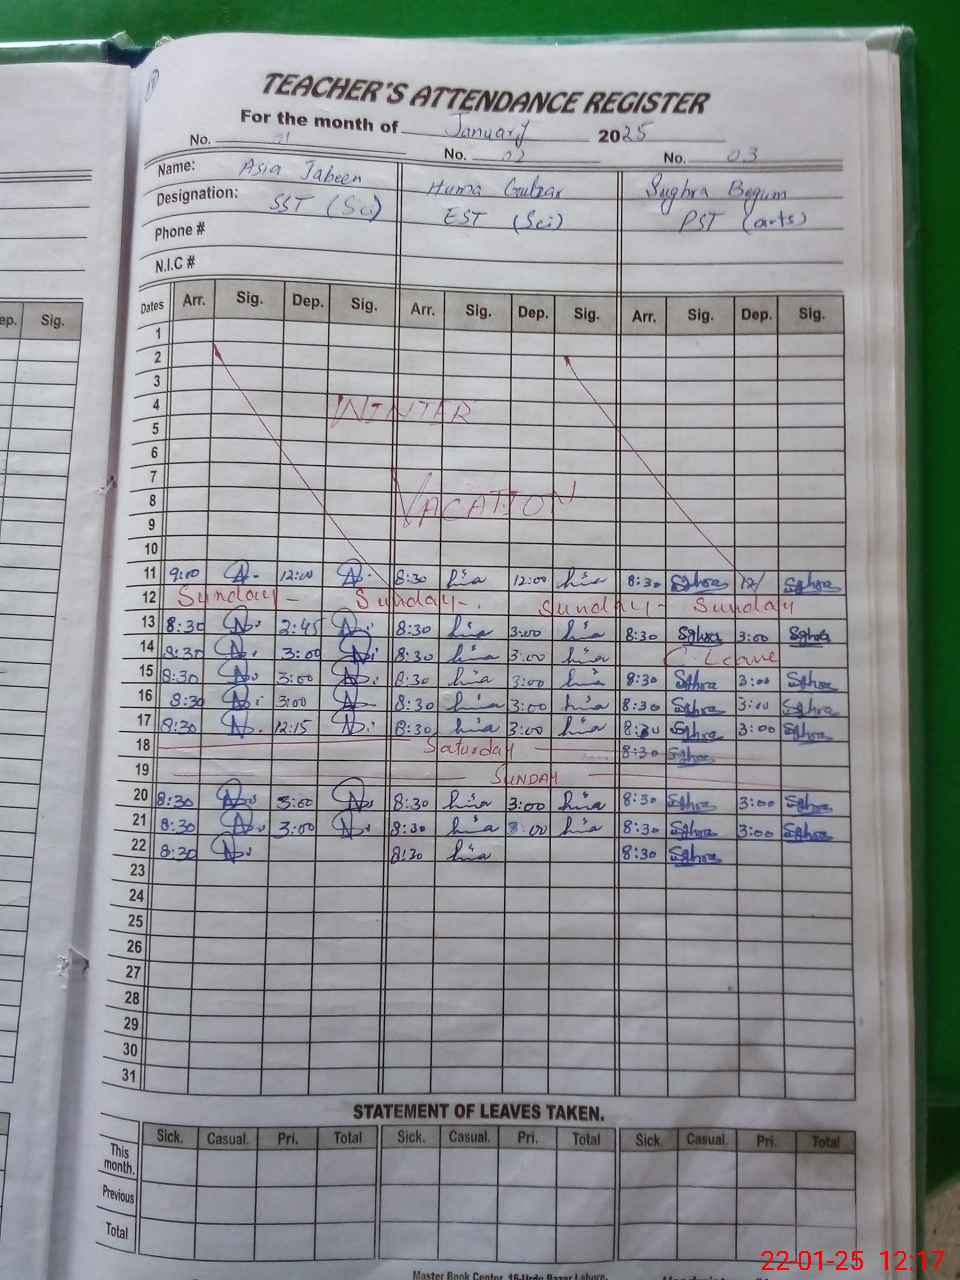 TEACHER'S ATTENDANCE REGISTER
For the month of January 2025
No. 01 No. 02 No. 03
Name: Asia Jabeen Huma Gulzar Sughra Begum
Designation: SST (Sci) EST (Sci) PST (arts)
Phone #
N.I.C #
Dates Arr. Sig. Dep. Sig. Arr. Sig. Dep. Sig. Arr. Sig. Dep. Sig.
ep. Sig.
1
2
3
4 WINTER
5
6
7
8 VACATION
9
10
11 9:00 12:00 8:30 12:00 8:30 Sghra 12/ Sghra
12 Sunday - Sunday - Sunday - Sunday
13 8:30 2:45 8:30 3:00 8:30 Sghra 3:00 Sghra
14 8:30 3:00 8:30 3:00 C. Leave
15 8:30 3:00 8:30 3:00 8:30 Sghra 3:00 Sghra
16 8:30 3:00 8:30 3:00 8:30 Sghra 3:00 Sghra
17 8:30 12:15 8:30 3:00 8:30 Sghra 3:00 Sghra
18 Saturday 8:30 Sghra
19 SUNDAY
20 8:30 3:00 8:30 3:00 8:30 Sghra 3:00 Sghra
21 8:30 3:00 8:30 3:00 8:30 Sghra 3:00 Sghra
22 8:30 8:30 8:30 Sghra
23
24
25
26
27
28
29
30
31
STATEMENT OF LEAVES TAKEN.
Sick. Casual. Pri. Total Sick. Casual. Pri. Total Sick. Casual. Pri. Total
This month.
Previous
Total
Master Book Center, 16-Urdu Bazar Lahore.
22-01-25 12:17